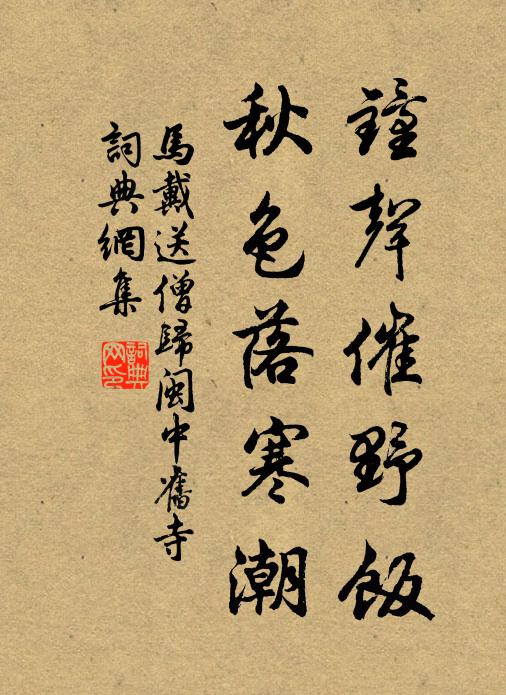 鐘聲催野飯
秋色落寒潮
馬戴送僧歸閩中舊寺
詞典網集
詞典網印